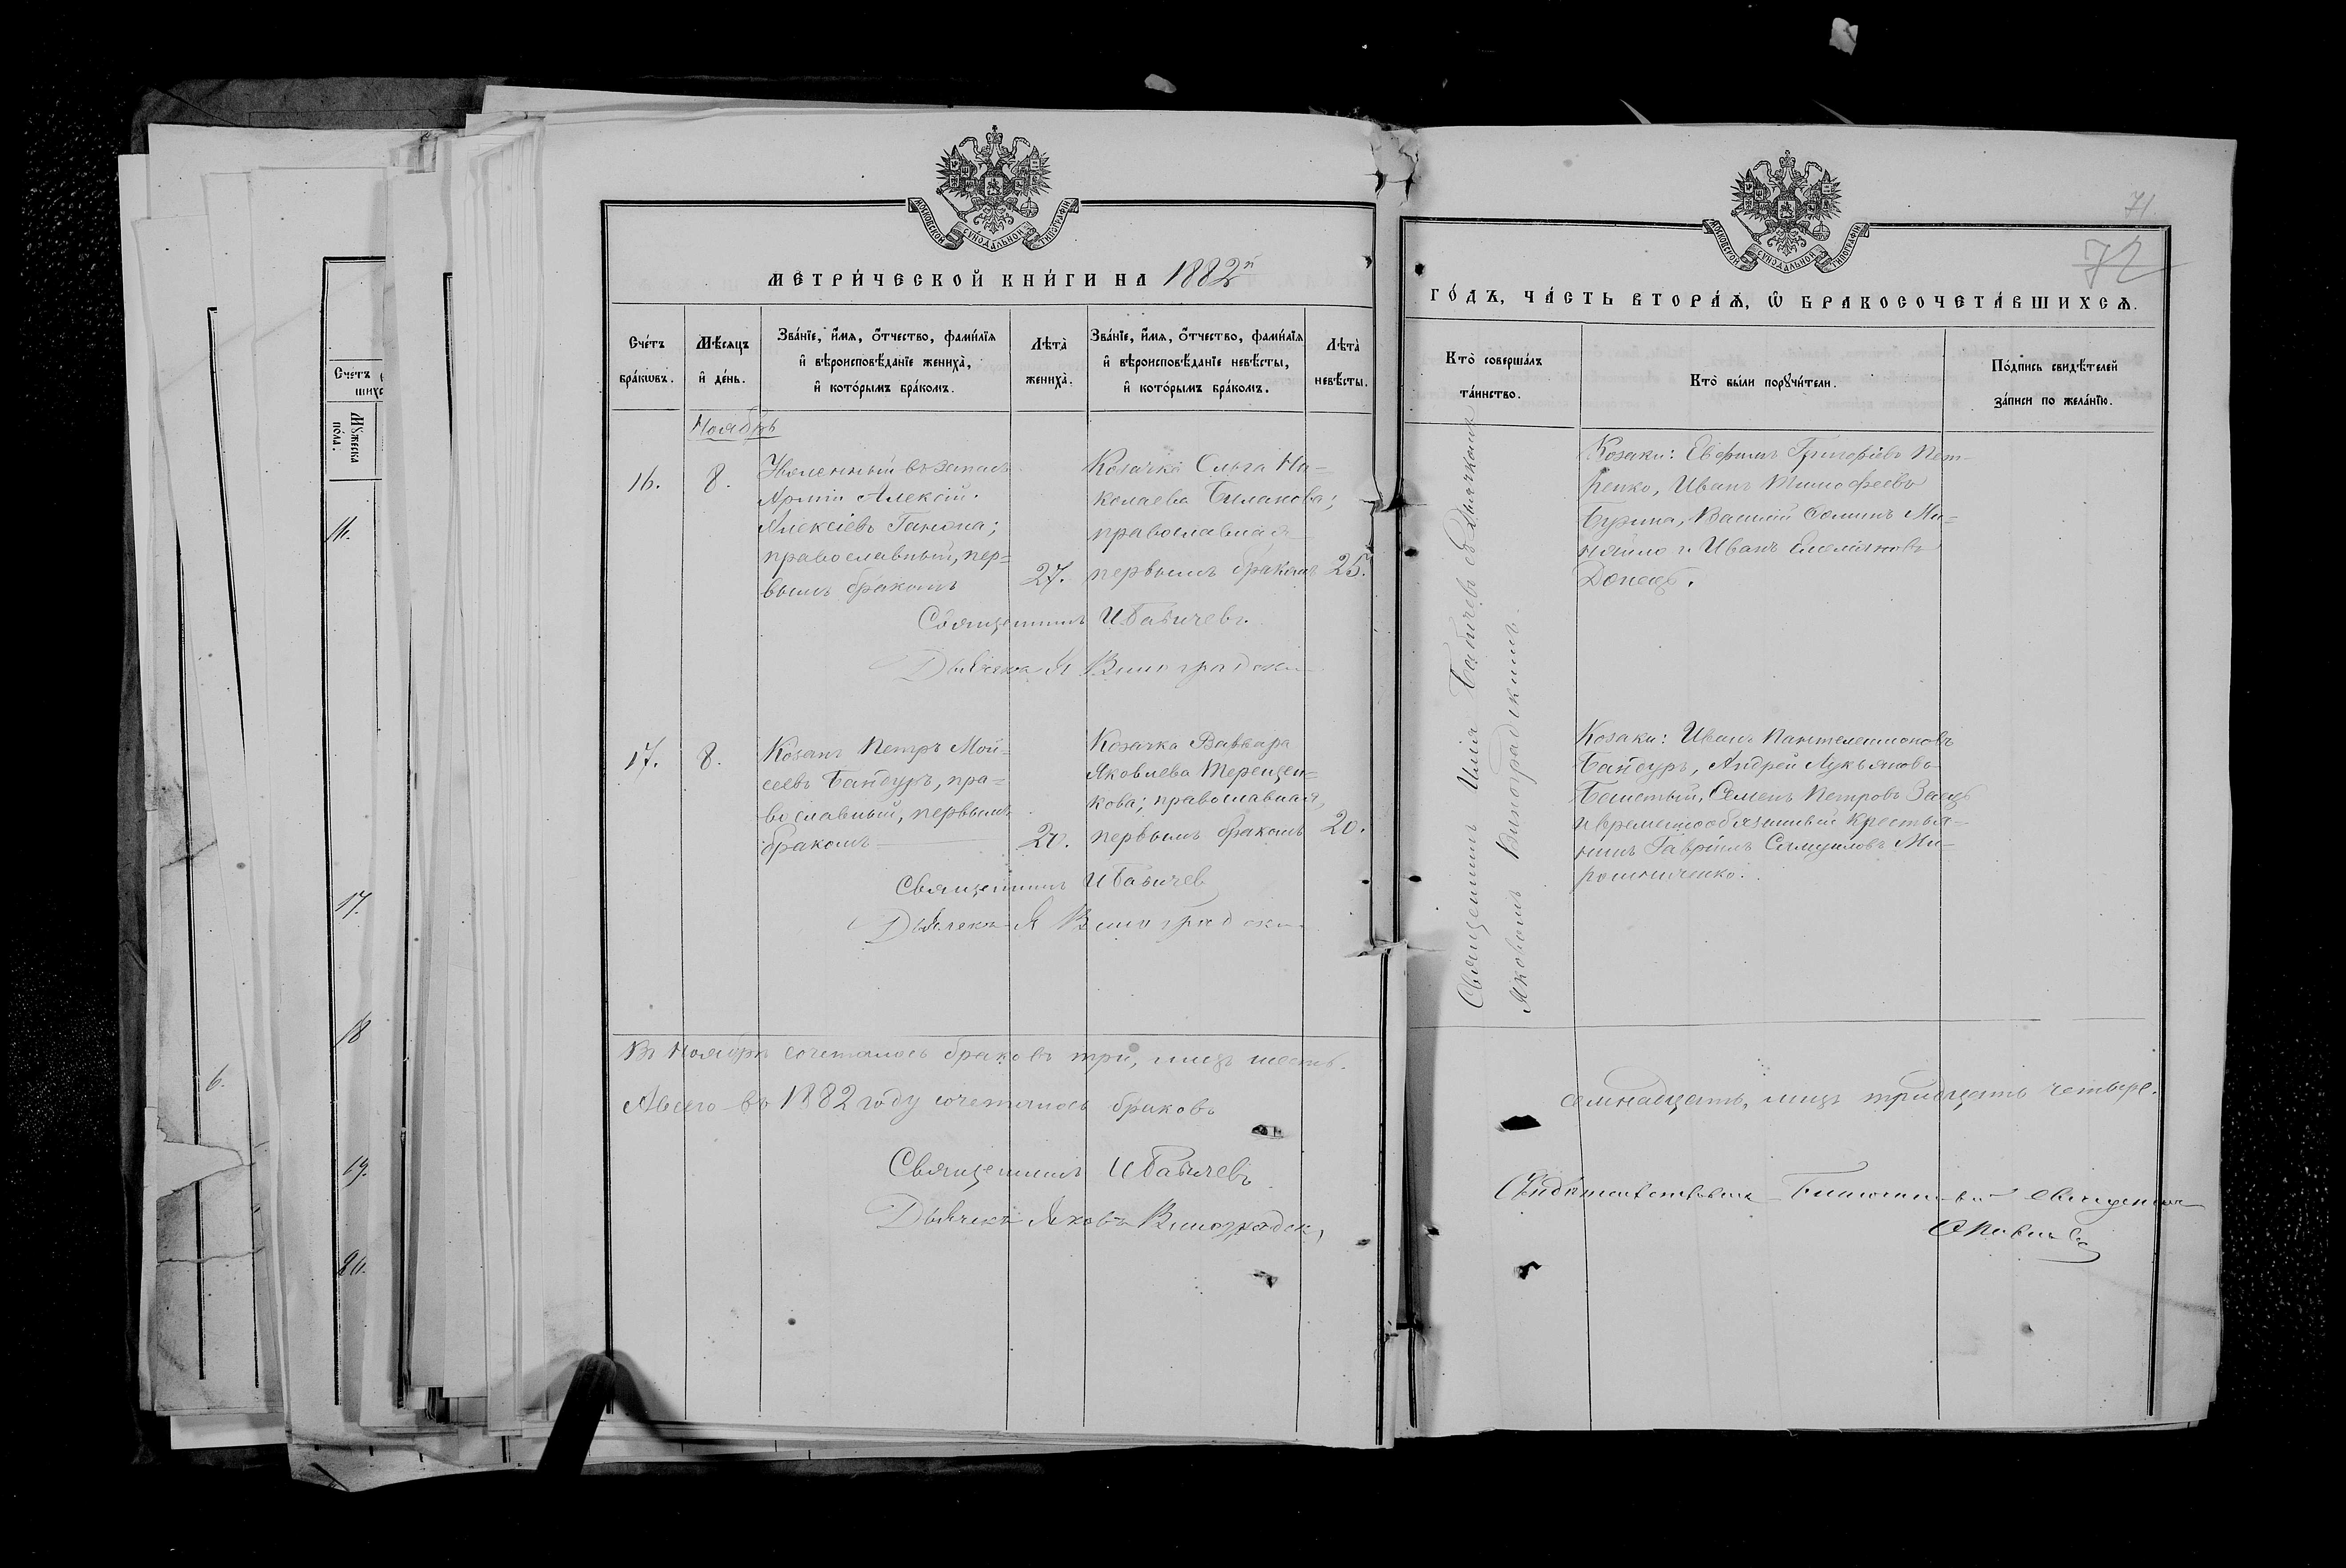 МОСКОВСКОЙ СѴНОДАЛЬНОЙ ТИПОГРАФІИ
МЕТРИ́ЧЕСКОЙ КНИ́ГИ НА 1882й
Сче́тъ бра́кѡвъ.
Мѣ́сѧцъ и҆ де́нь.
Зва́нїе, и҆́мѧ, ѻ҆́тчество, фами́лїѧ и҆ вѣроисповѣ́данїе жениха̀, и҆ кото́рымъ бра́комъ.
Лѣта̀ жениха̀.
Зва́нїе, и҆́мѧ, ѻ҆́тчество, фами́лїѧ и҆ вѣроисповѣ́данїе невѣ́сты, и҆ кото́рымъ бра́комъ.
Лѣта̀ невѣ́сты.
Ноябрь
16.
8.
Уволенный въ запасъ
Арміи Алексій
Алексіевъ Ганжа;
православный, пер=
вымъ бракомъ
27.
Козачка Ольга Ни=
колаева Билакова;
православная
первымъ бракомъ
25.
Священникъ И Бабичевъ.
Дьячекъ Я Виноградски
17.
8.
Козакъ Петръ Мой=
сеевъ Бандуръ, пра=
вославный, первымъ
бракомъ
20.
Козачка Варвара
Яковлева Терещен=
кова; православная,
первымъ бракомъ
20.
Священникъ И Бабичев
Дьячекъ Я Виноградски
Въ Ноябрѣ сочеталось браковъ три, лицъ шесть.
Всего въ 1882 году сочеталось браковъ
Священникъ И Бабичевъ
Дьячекъ Яковъ Виноградск
МОСКОВСКОЙ СѴНОДАЛЬНОЙ ТИПОГРАФІИ
71.
72
ГО́ДЪ, ЧА́СТЬ ВТОРА́Ѧ, Ѡ҆ БРАКОСОЧЕТА́ВШИХСѦ.
Кто̀ соверша́лъ та́инство.
Кто̀ бы́ли порꙋчи́тели.
По́дпись свидѣ́телей за́писи по жела́нїю.
Священникъ Илія Бабичевъ съ Дьячкомъ
Яковомъ Виноградскимъ.
Козаки: Евфимъ Григоріевъ Пет=
ренко, Иванъ Тимофеевъ
Бурина, Василій Фоминъ Ми=
найло и Иванъ Емеліяновъ
Донецъ.
Козаки: Иванъ Пантелеимоновъ
Бандуръ, Андрей Лукьяновъ
Семенъ Петровъ Заецъ
и временнообязанный крестья=
нинъ Гавріилъ Самуиловъ Ми=
рошниченко.
семнадцать, лицъ тридцать четыре.
11.
17.
18
19.
20.
6.